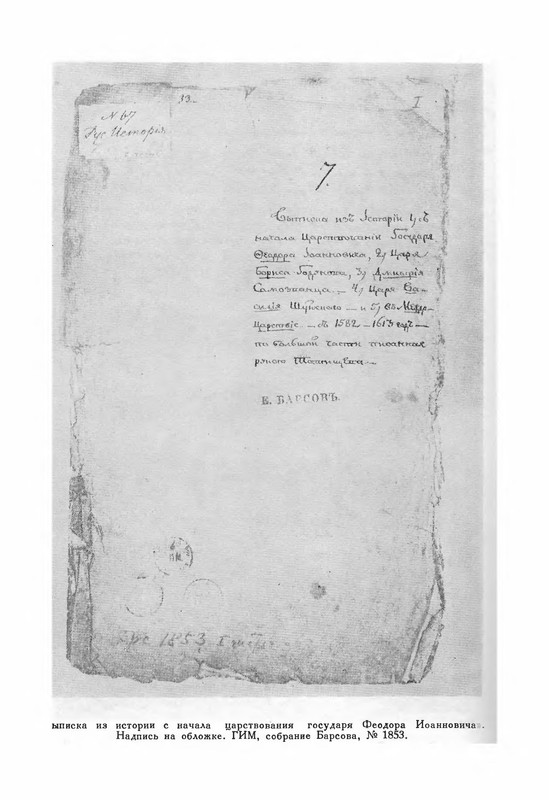 N 67
Рус Исторiя
13.
I
7.
Выписка изъ Iсторiи 1) съ
начала Царствованiя Государя
Ѳеодора Iоанновича, 2) Царя
Бориса Годунова, 3) Дмитрiя
Самозванца. — 4) Царя Ва-
силiя Шуйскаго — и 5) въ Между
Царствiе — съ 1582 — 1613 годъ —
по большой части писанная
рукою Татищева —
Е. БАРСОВЪ.
1853
ыписка из истории с начала царствования государя Феодора Иоанновича».
Надпись на обложке. ГИМ, собрание Барсова, № 1853.